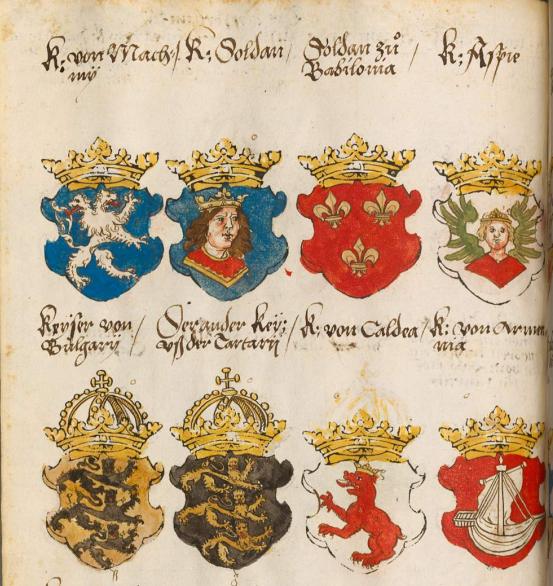 K: von Mach/
my
K: Soldan/
Soldan zů/
Babilonia
K: Aspie
Keyser von/
Bulgary
Der ander Key:/
vss der Tartary
K: von Caldea/
K: von Armen
nia